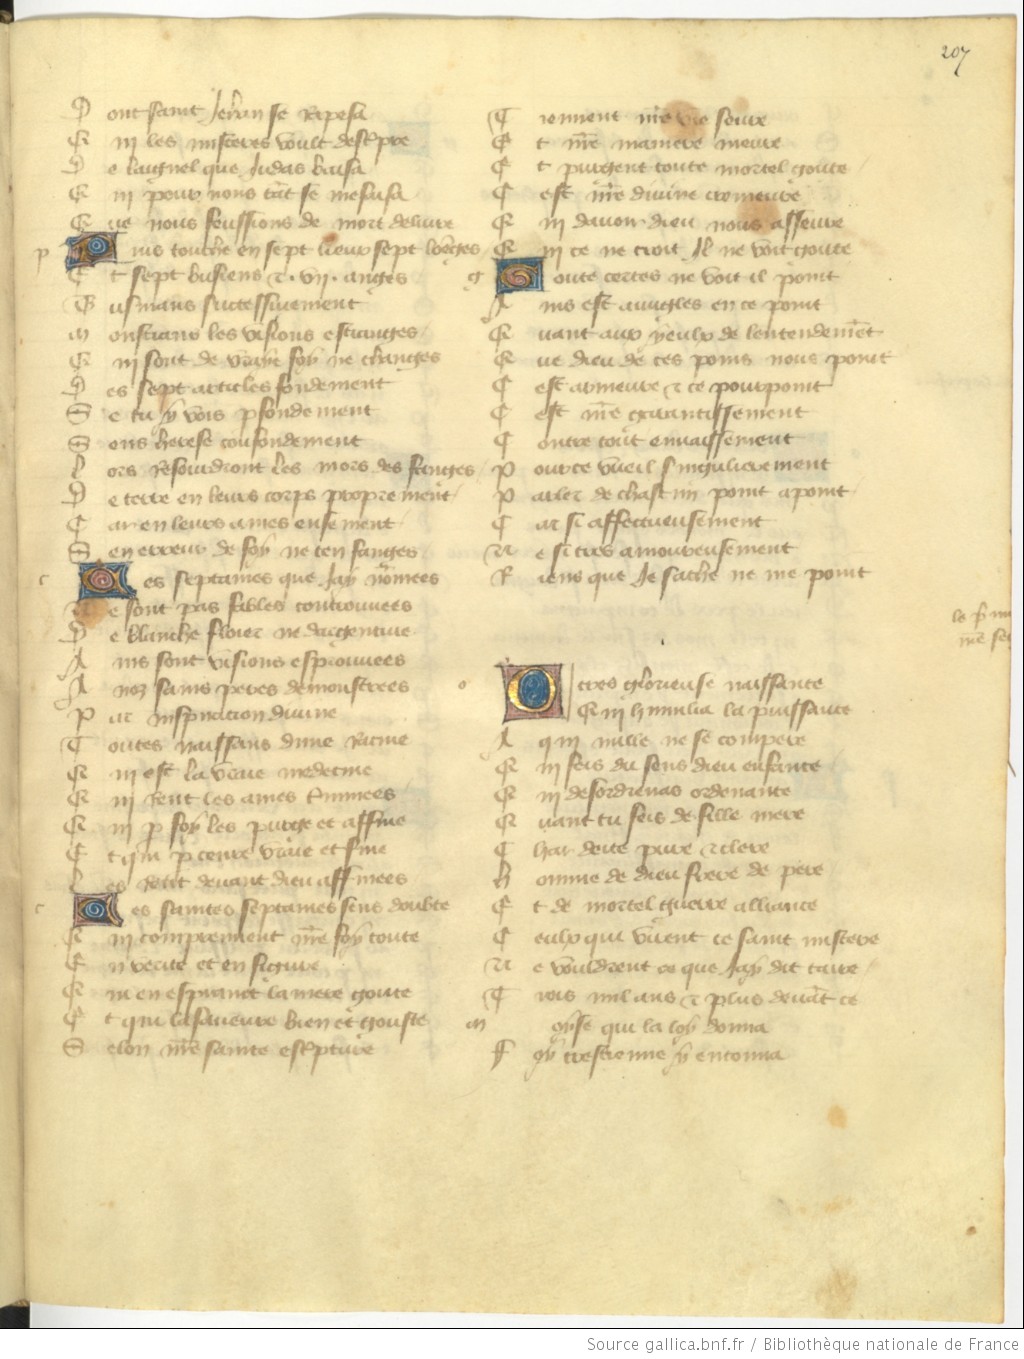 207
Dont saint Jehan se reposa
Qui les misteres voult descripre
De l'aignel que Judas baisa
Qui pour nous tant se mesusa
Que nous feussions de mort delivre
Puis touche en sept lieux sept loenges
Et sept busiens & .vii. anges
Busmans successivement
Monstrans les visions estranges
Qui sont de vraye foy ne changes
Des sept articles fondement
Se tu y vois parfondement
Sens herese confondement
Lors resourdront les mors des fanges
De terre en leurs corps proprement
Car en leurs ames ensement
S en erreur de foy ne ten fanges
Ces septames que Jay nommees
Ne sont pas fables controuvees
De blanche flour ne dargentine
Ains sont visions esprouvees
A noz sains peres demonstrees
Par inspiracion divine
Toutes naissans dune racine
Qui est la vraie medecine
Qui rent les ames
Qui par foy les purge et affine
Et qui par ceuvre vraie et fine
Les rent devant dieu affinees
Ces saintes septames sens doubte
Qui comprennent nostre foy toute
En verite et en figure
Qui en esperance la mere goute
Et qui la saveure bien et gouste
Selon nostre sainte escripture
Tiennent nostre vie seure
Et nostre maniere meure
Et purgent toute mortel goute
C est nostre divine
Qui davoir dieu nous asseure
Qui ce ne croit Il ne voit goute
Goute certes ne voit il point
Ains est avugles en ce point
Quant aux yeulx de lentendement
Que dieu de ces poins nous point
C est armeure & ce pourpoint
C est nostre garantissement
Contre tout envaissement
Pour ce vueil singulierement
Parler de chascun point a point
Car si affectueusement
Ne si tres amoureusement
Riens que Je sache ne me point
O tres glorieuse naissance
Qui humilia la puissance
A qui nulle ne se compere
Qui feis du sens dieu enfance
Qui desordenas ordenance
Quant tu feis de fille mere
Char deite pure & clere
Homme de dieu frere de pere
Et de mortel guerre alliance
Ceulx qui virent ce saint mistere
Ne vouldrent ce que Jay dit taire
Trois mil ans & plus devant ce
Moyse qui la loy donna
Foy crestienne y entonna